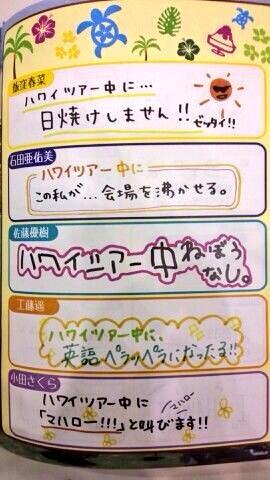 飯窪春菜
ハワイツアー中に…
日焼けしません!!
ゼッタイ!!
石田亜佑美
ハワイツアー中に
この私が…会場を沸かせる。
佐藤優樹
ハワイツアー中ねぼう
なし。
工藤遥
ハワイツアー中に、
英語ペラッペラになったる!!
小田さくら
ハワイツアー中に
マハロー
「マハロー!!!」と叫びます!!